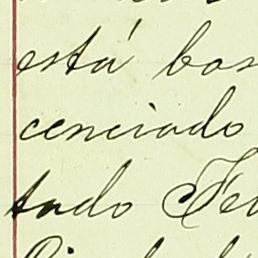 está bas
cenciado
tado Fe